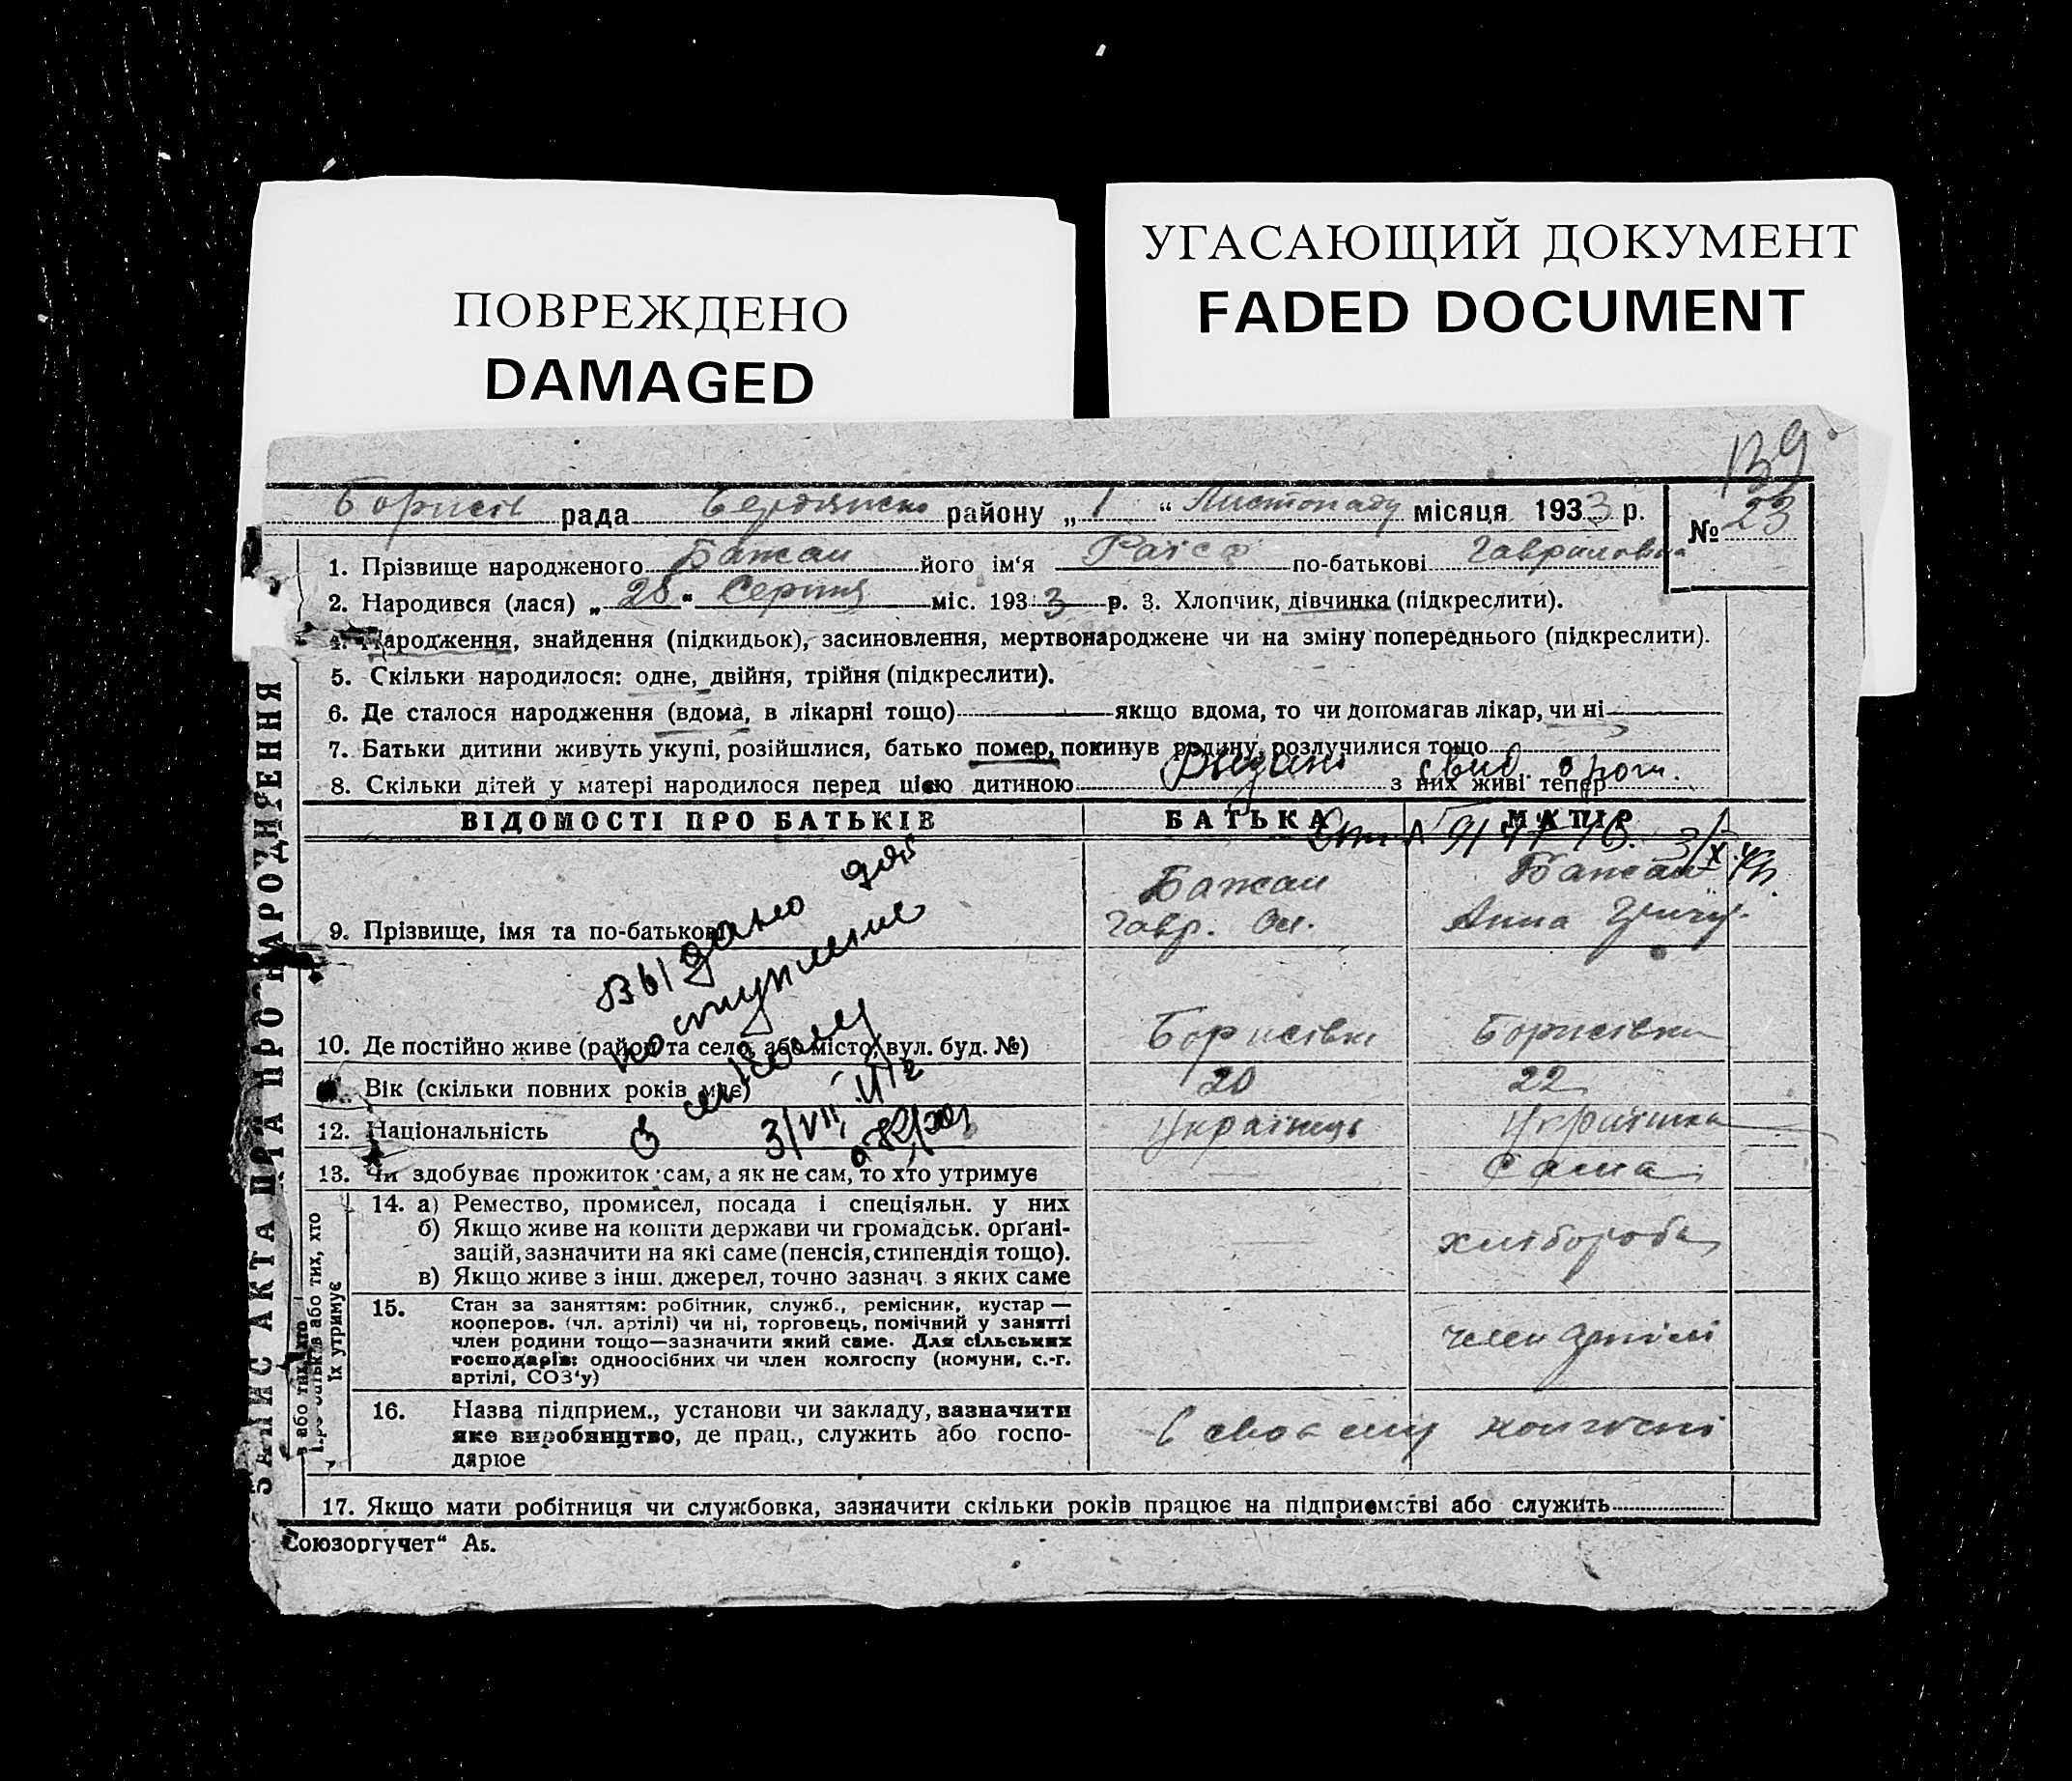 ПОВРЕЖДЕНО
DAMAGED
УГАСАЮЩИЙ ДОКУМЕНТ
FADED DOCUMENT
139
Борисів рада Бердянсько району „ 1 “ Листопаду місяця 1933 р.
№ 23
1. Прізвище народженого Бажан його ім‘я Раїса по-батькові Гавриловна
2. Народився (лася) „ 28 “ Серпня міс. 1933 р. 3. Хлопчик, дівчинка (підкреслити).
4. Народження, знайдення (підкидьок), засиновлення, мертвонароджене чи на зміну попереднього (підкреслити).
5. Скільки народилося: одне, двійня, трійня (підкреслити).
6. Де сталося народження (вдома, в лікарні тощо) якщо вдома, то чи допомагав лікар, чи ні
7. Батьки дитини живуть укупі, розійшлися, батько помер, покинув родину, розлучилися тощо
Выдано свид. о рож.
8. Скільки дітей у матері народилося перед цією дитиною з них живі тепер
ВІДОМОСТІ ПРО БАТЬКІВ БАТЬКА МАТІР
Бажан Бажан
9. Прізвище, імя та по-батькові Гавр. Анна
Выдано для
поступления
в школу
3/VII
10. Де постійно живе (район та село, або місто, вул. буд. №) Борисівка Борисівка
11. Вік (скільки повних років має) 20 22
12. Національність Українець Українка
13. Чи здобуває прожиток сам, а як не сам, то хто утримує — Сама
14. а) Ремество, промисел, посада і спеціяльн. у них
б) Якщо живе на кошти держави чи громадськ. орґані-
зацій, зазначити на які саме (пенсія, стипендія тощо).
в) Якщо живе з інш. джерел, точно зазнач. з яких саме
— хлібороб
15. Стан за заняттям: робітник, служб., ремісник, кустар —
кооперов. (чл. артілі) чи ні, торговець, помічний у занятті
член родини тощо—зазначити який саме. Для сільських
господарів: одноосібних чи член колгоспу (комуни, с.-г.
артілі, СОЗ‘у)
член артілі
16. Назва підприєм., установи чи закладу, зазначити
яке виробництво, де прац., служить або госпо-
дарює
в своєму колгоспі
17. Якщо мати робітниця чи службовка, зазначити скільки років працює на підприємстві або служить
Союзоргучет“ Аб.
ЗАПИС АКТА ПРО НАРОДЖЕННЯ
або тих, хто
їх утримує